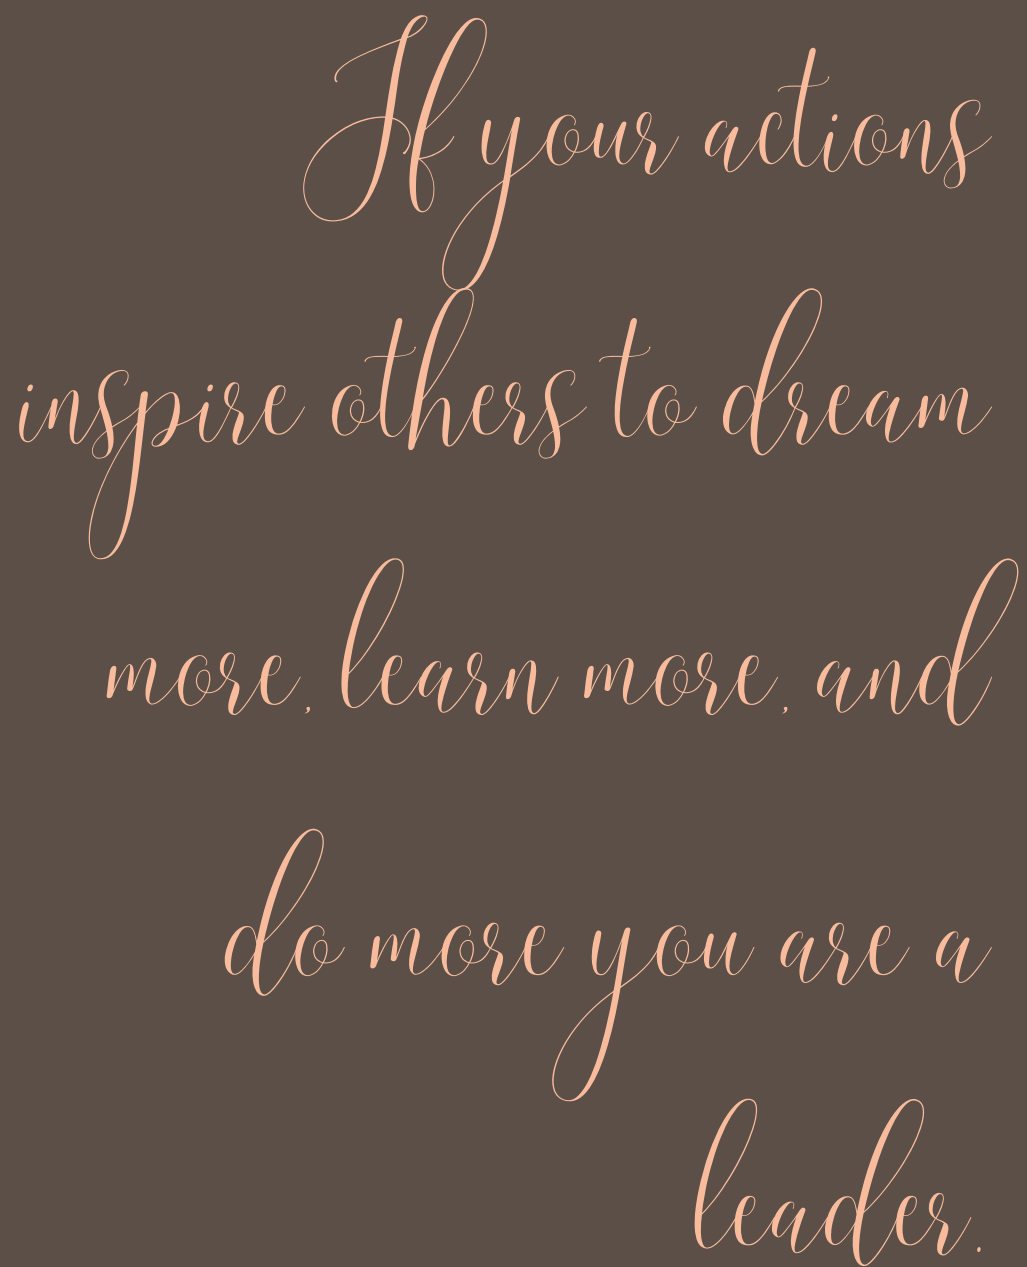 If your actions
inspire others to dream
more, learn more, and
do more you are a
leader.